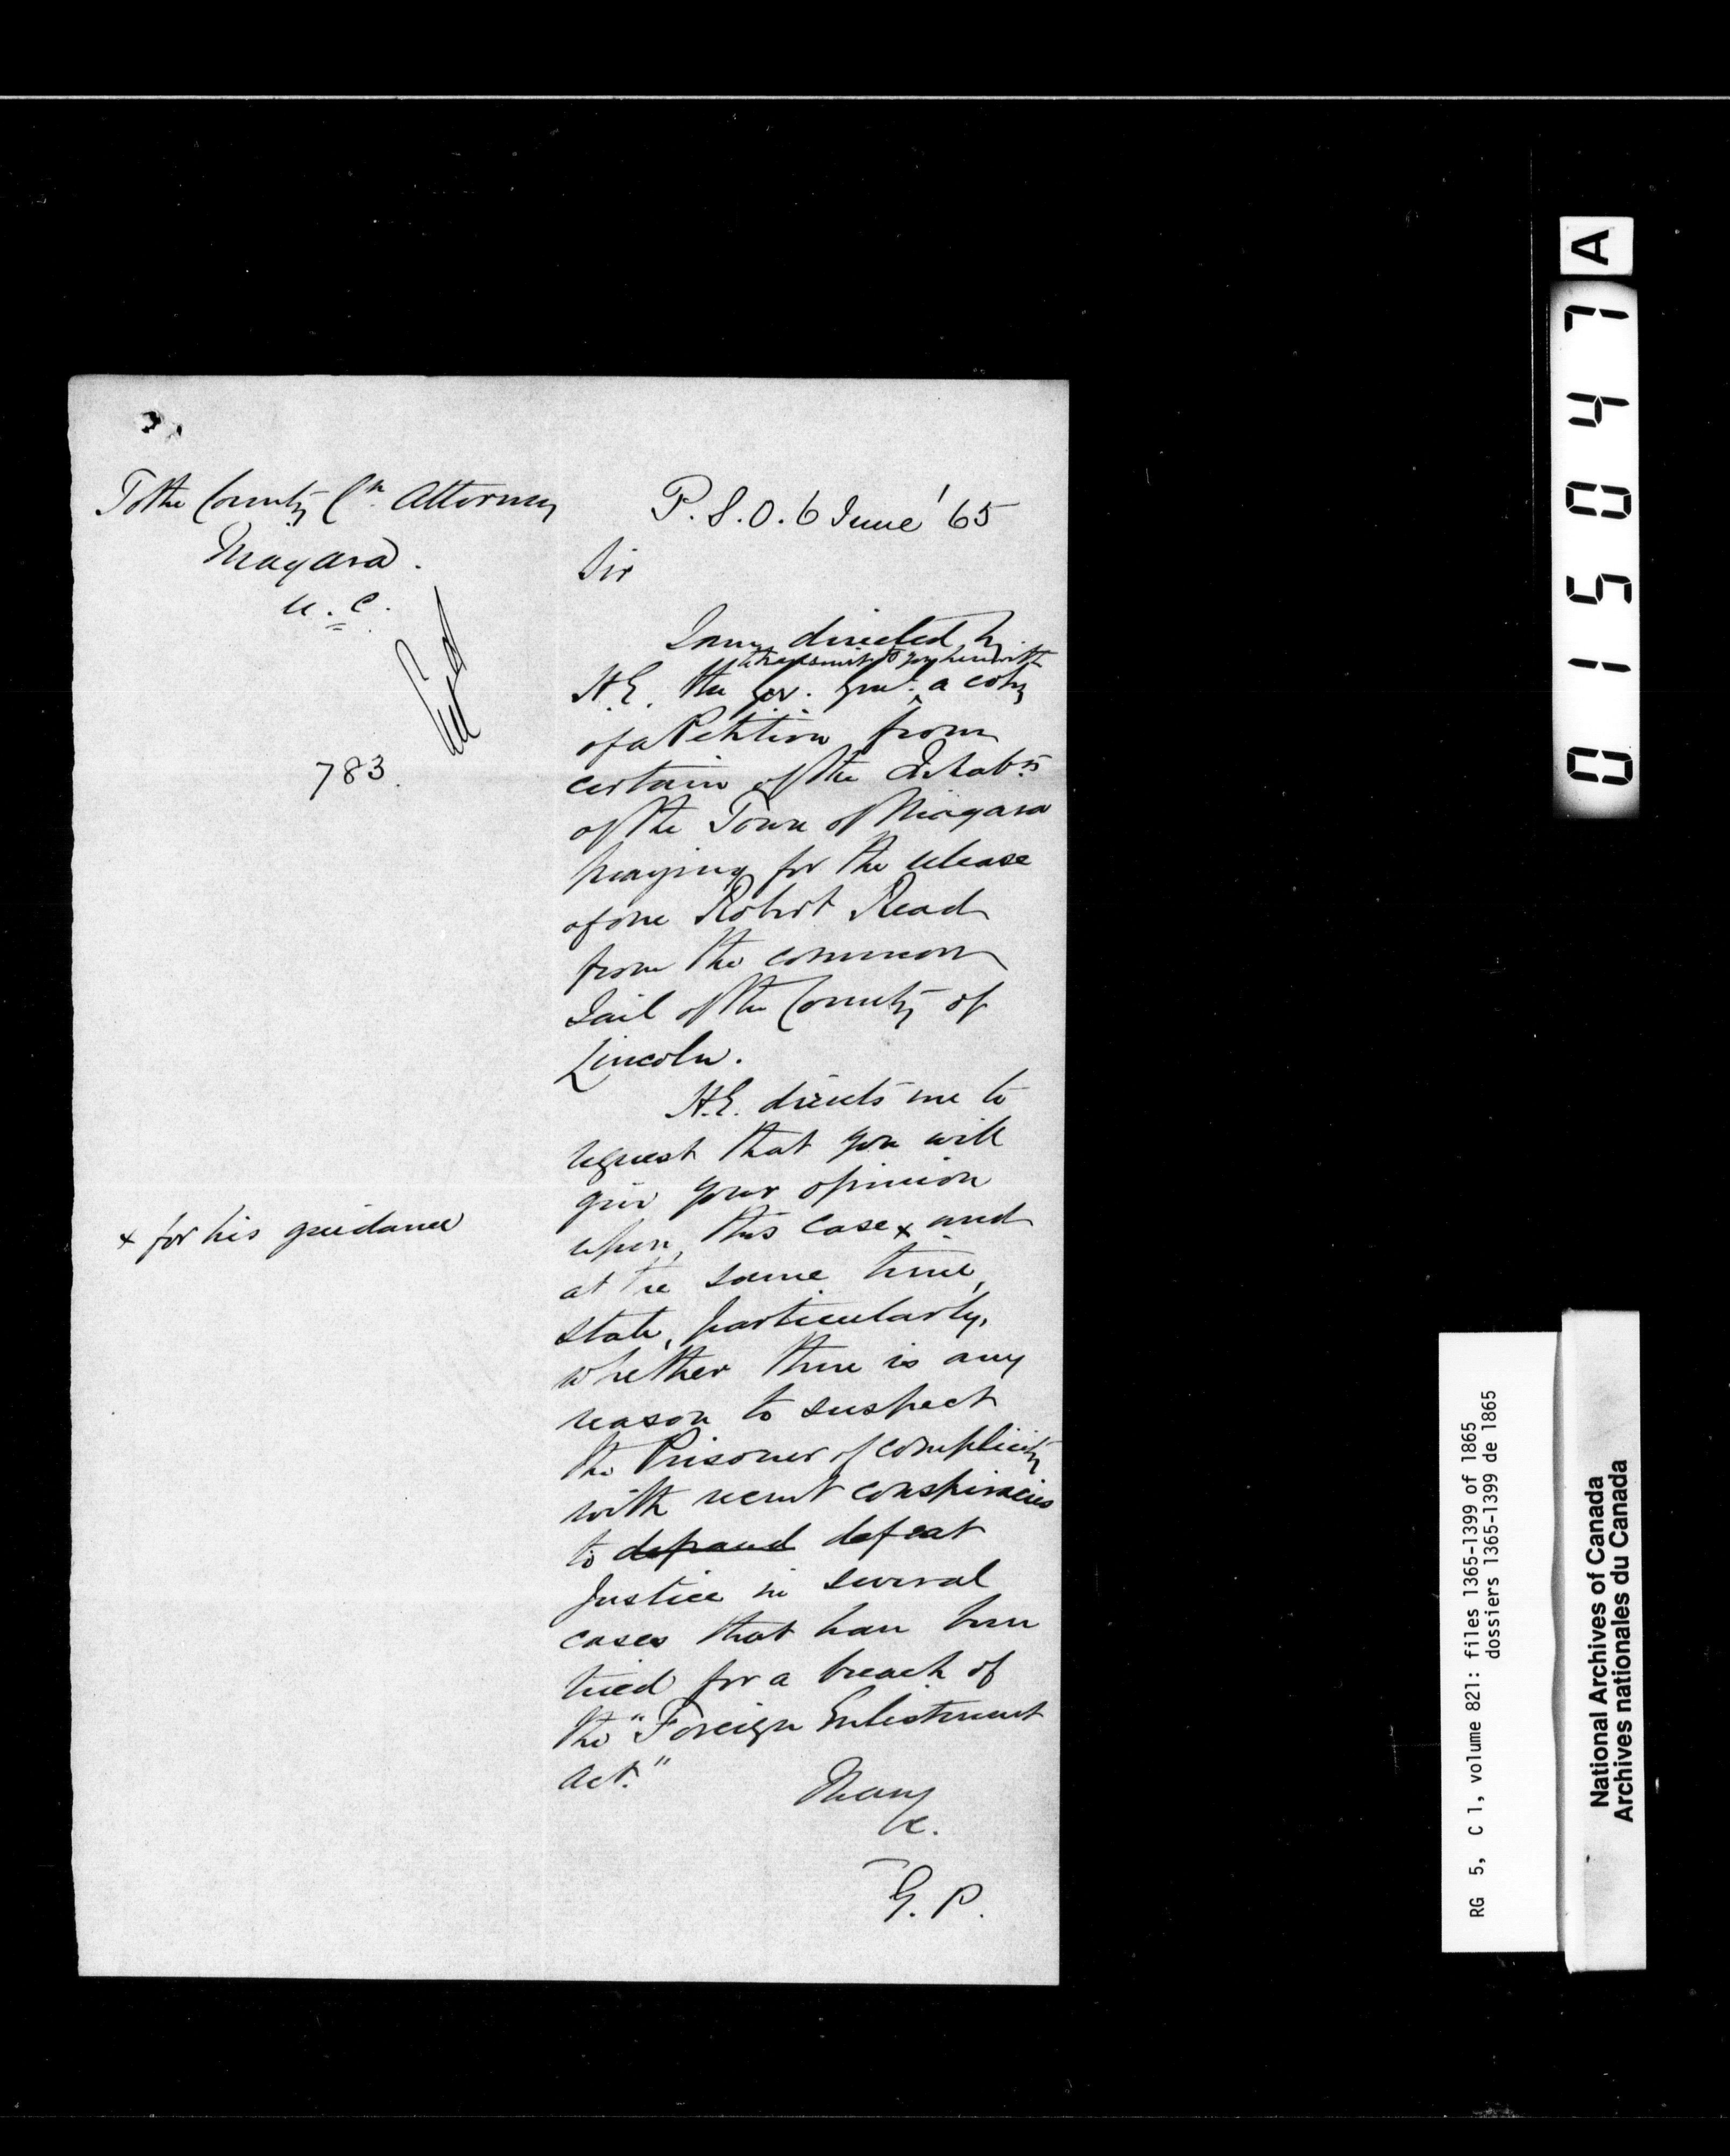 To the County Cn. Attorney
Niagara.
U.C.
Entd
783.
P.S.O. 6 June '65
Sir
I am directed by
to transmit to you herewith
H.E. the Gov. Genl. ^ a copy
of a Petition from
certain of the Inhabts
of the Town of Niagara
praying for the release
of one Robert Read
from the common
Jail of the County of
Lincoln.
H.E. directs me to
request that you will
give your opinion
upon, this case x and
x for his guidance
at the same time,
state, particularly,
whether there is any
reason to suspect
the Prisoner of complicity
with recent conspiracies
to defraud defeat
Justice in several
cases that have been
tried for a breach of
the "Foreign Enlistment
Act."
&c.
E. P.
A
015047
RG 5, C 1, volume 821: files 1365-1399 of 1865
dossiers 1365-1399 de 1865
National Archives of Canada
Archives nationales du Canada